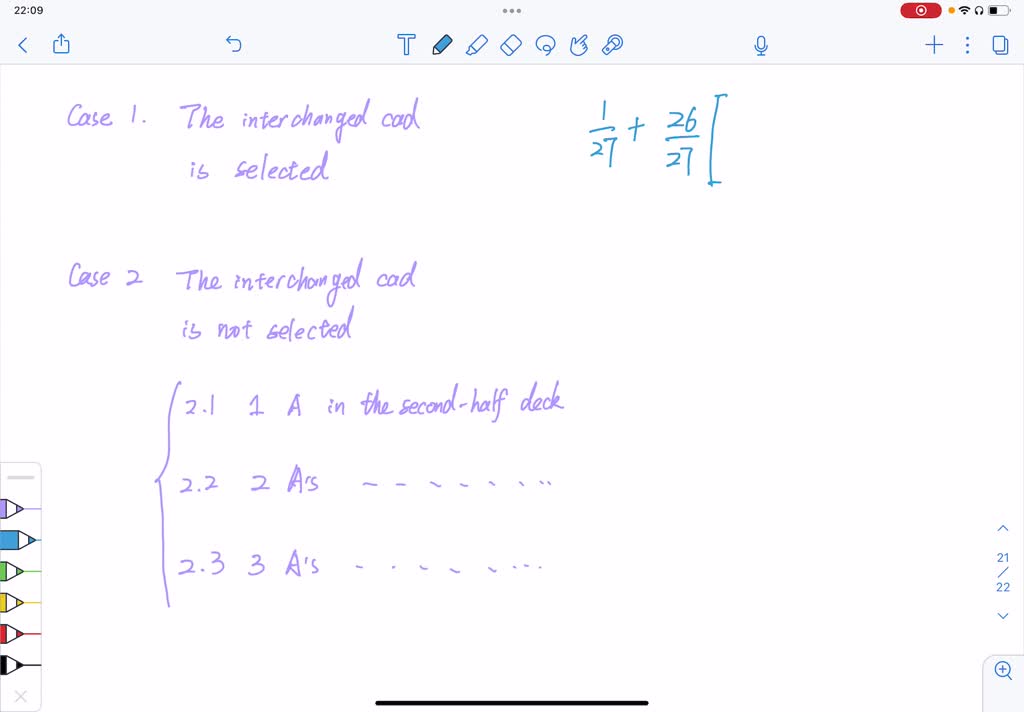 22:09
Case 1. The interchanged cad
is selected
1/27 + 26/27 [
Case 2 The interchanged cad
is not selected
2.1 1 A in the second-half deck
2.2 2 A's
2.3 3 A's
21
/
22